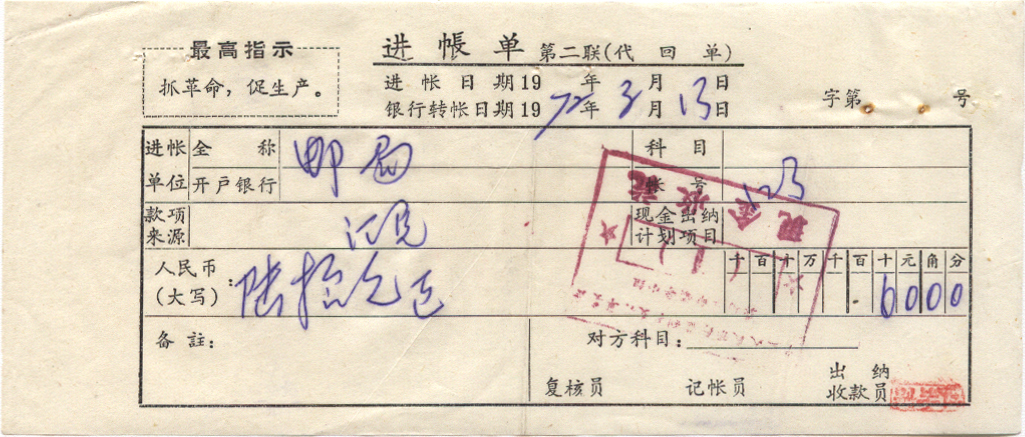 最高指示
抓革命，促生产。
进帐单 第二联(代回单)
进帐日期19 年 月 日
银行转帐日期19 72年3月13日
字第 号
进帐单位 全称 邮局 科目
开户银行 帐号
款项来源 现金出纳计划项目
人民币(大写): 陆拾元正 千百十万千百十元角分 6000
备註: 对方科目:
复核员 记帐员 出纳收款员